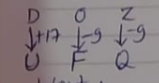 D O Z
↓+17 ↓-9 ↓-9
U F Q